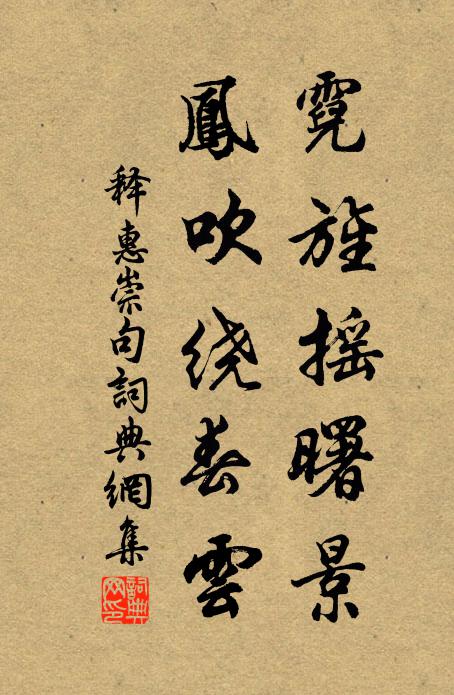 霓旌摇曙景
鳳吹绕春雲
释惠崇句詞典網集
詞典网印